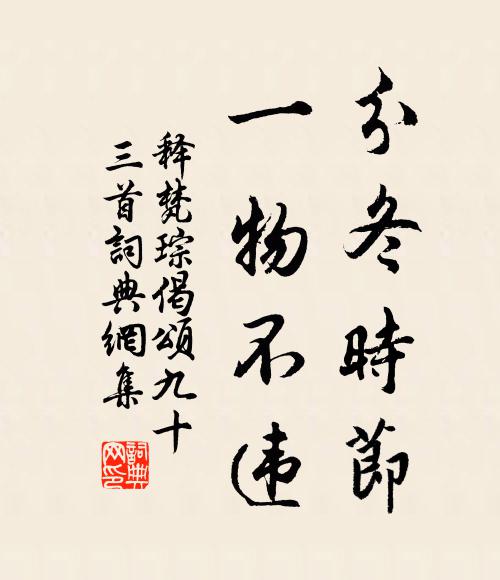 分冬時節
一物不违
释梵琮偈頌九十
三首詞典網集
詞典
网印